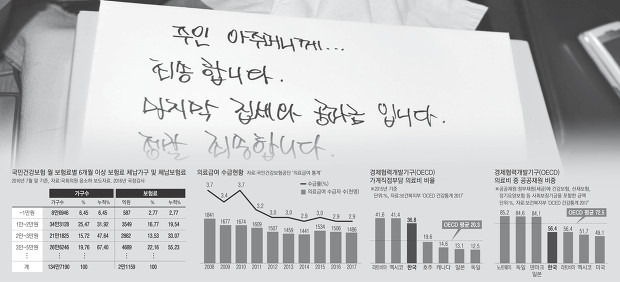 주인 아주머니께...
죄송합니다.
마지막 집세와 공과금입니다.
정말 죄송합니다.
국민건강보험 월 보험료별 6개월 이상 보험료 체납가구 및 체납보험료
2018년 7월 말 기준, 자료: 국회의원 윤소하 보도자료, 2018년 국정감사
가구수 보험료
가구수 % 누적% 억원 % 누적%
~1만원 8만6946 6.45 6.45 587 2.77 2.77
1만~2만원 34만3128 25.47 31.92 3549 16.77 19.54
2만~3만원 21만1825 15.72 47.64 2862 13.53 33.07
3만~5만원 26만6246 19.76 67.40 4689 22.16 55.23
계 134만7190 100 2만1159 100
의료급여 수급현황 자료: 국민건강보험공단 '의료급여 통계'
수급률(%)
의료급여 수급자 수(천명)
3.7 3.7 3.0 2.9 2.9 2.9
1841 1677 1674 1609 1507 1459 1441 1544 1509 1486
2008 2009 2010 2011 2012 2013 2014 2015 2016 2017
경제협력개발기구(OECD)
가계직접부담 의료비 비율
*2015년 기준
단위: %, 자료: 보건복지부 'OECD 건강통계 2017'
OECD 평균 20.3
41.6 41.4 36.8 19.6 14.6 13.1 12.5
라트비아 멕시코 한국 호주 캐나다 일본 독일
경제협력개발기구(OECD)
의료비 중 공공재원 비중
*공공재원: 정부재원(세금)에 건강보험, 산재보험,
장기요양보험 등 사회보장기금을 포함한 금액
단위: %, 자료: 보건복지부 'OECD 건강통계 2017'
OECD 평균 72.5
85.2 84.6 84.1 56.4 56.4 51.7 49.1
노르웨이 독일 덴마크 일본 한국 라트비아 멕시코 미국